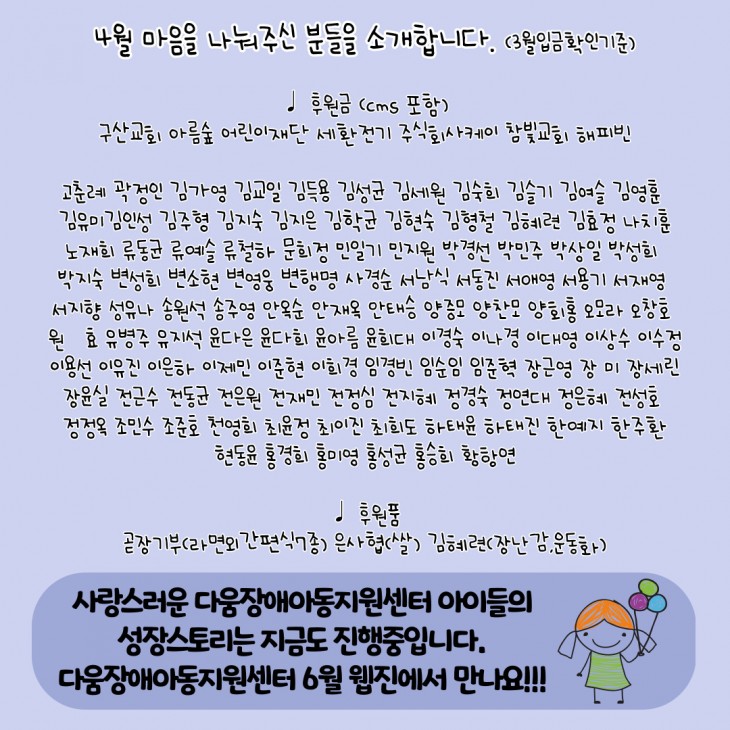 4월 마음을 나눠주신 분들을 소개합니다. (3월입금확인기준)
♩ 후원금 (cms 포함)
구산교회 아름숲 어린이재단 세환전기 주식회사케이 참빛교회 해피빈
고춘례 곽정인 김가영 김교일 김득용 김성균 김세원 김숙희 김슬기 김여슬 김영훈
김유미김인성 김주형 김지숙 김지은 김학균 김현숙 김형철 김혜련 김효정 나치훈
노재희 류동균 류예슬 류철하 문희정 민일기 민지원 박경선 박민주 박상일 박성희
박지숙 변성희 변소현 변영웅 변행명 사경순 서남식 서동진 서애영 서용기 서재영
서지향 성유나 송원석 송주영 안옥순 안재옥 안태승 양중모 양찬모 양회홍 오모라 오창호
원 효 유병주 유지석 윤다은 윤다희 윤아름 윤희대 이경숙 이나경 이대영 이상수 이수정
이용선 이유진 이은하 이제민 이준현 이희경 임경빈 임순임 임준혁 장근영 장 미 장세린
장윤실 전근수 전동균 전은원 전재민 전정심 전지혜 정경숙 정연대 정은혜 전성호
정정옥 조민수 조준호 천영희 최윤정 최이진 최희도 하태윤 하태진 한예지 한주환
현동윤 홍경희 홍미영 홍성균 홍승희 황항연
♩ 후원품
곧장기부(라면외간편식7종) 은사협(쌀) 김혜련(장난감,운동화)
사랑스러운 다움장애아동지원센터 아이들의
성장스토리는 지금도 진행중입니다.
다움장애아동지원센터 6월 웹진에서 만나요!!!